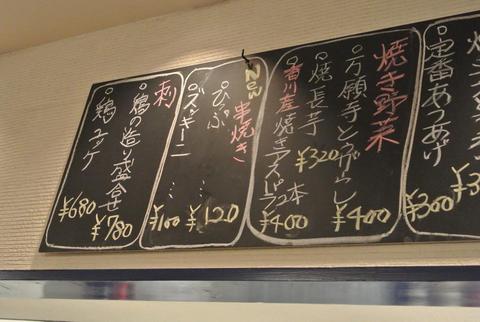 ○定番あつあげ
¥300
焼き野菜
○万願寺とうがらし
¥400
○焼長芋
¥320
○香川産焼きアスパラ2本
¥400
New 串焼き
○ひっぷ…
¥120
○ズッキーニ…
¥100
刺
○鶏の造り盛合せ
¥780
○鶏ユッケ
¥680